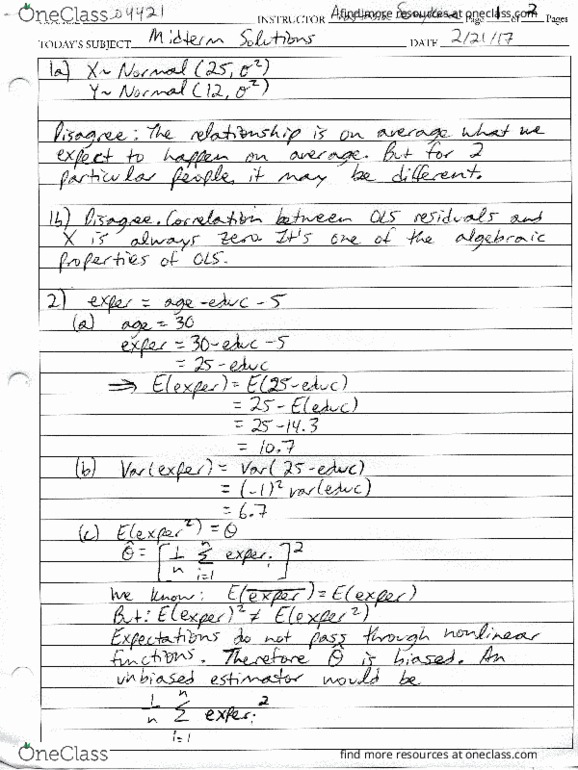 OneClass
04421
INSTRUCTOR
find more resources at oneclass.com
Page 1 of 2 Pages
TODAY'S SUBJECT Midterm Solutions DATE 2/21/17
1a) X~ Normal (25, σ²)
Y~ Normal (12, σ²)
Disagree: The relationship is on average what we
expect to happen on average. But for 2
particular people, it may be different.
1b) Disagree. Correlation between OLS residuals and
X is always zero. It's one of the algebraic
properties of OLS.
2) exper = age - educ - 5
(a) age = 30
exper = 30 - educ - 5
= 25 - educ
⇒ E(exper) = E(25 - educ)
= 25 - E(educ)
= 25 - 14.3
= 10.7
(b) Var(exper) = Var(25 - educ)
= (-1)² var(educ)
= 6.7
(c) E(exper²) = θ
θ̂ = [1/n Σ exper_i]²
i=1
We know: E(\overline{exper}) = E(exper)
But: E(exper)² ≠ E(exper²)
Expectations do not pass through nonlinear
functions. Therefore θ̂ is biased. An
unbiased estimator would be
1/n Σ exper_i²
n
i=1
OneClass
find more resources at oneclass.com